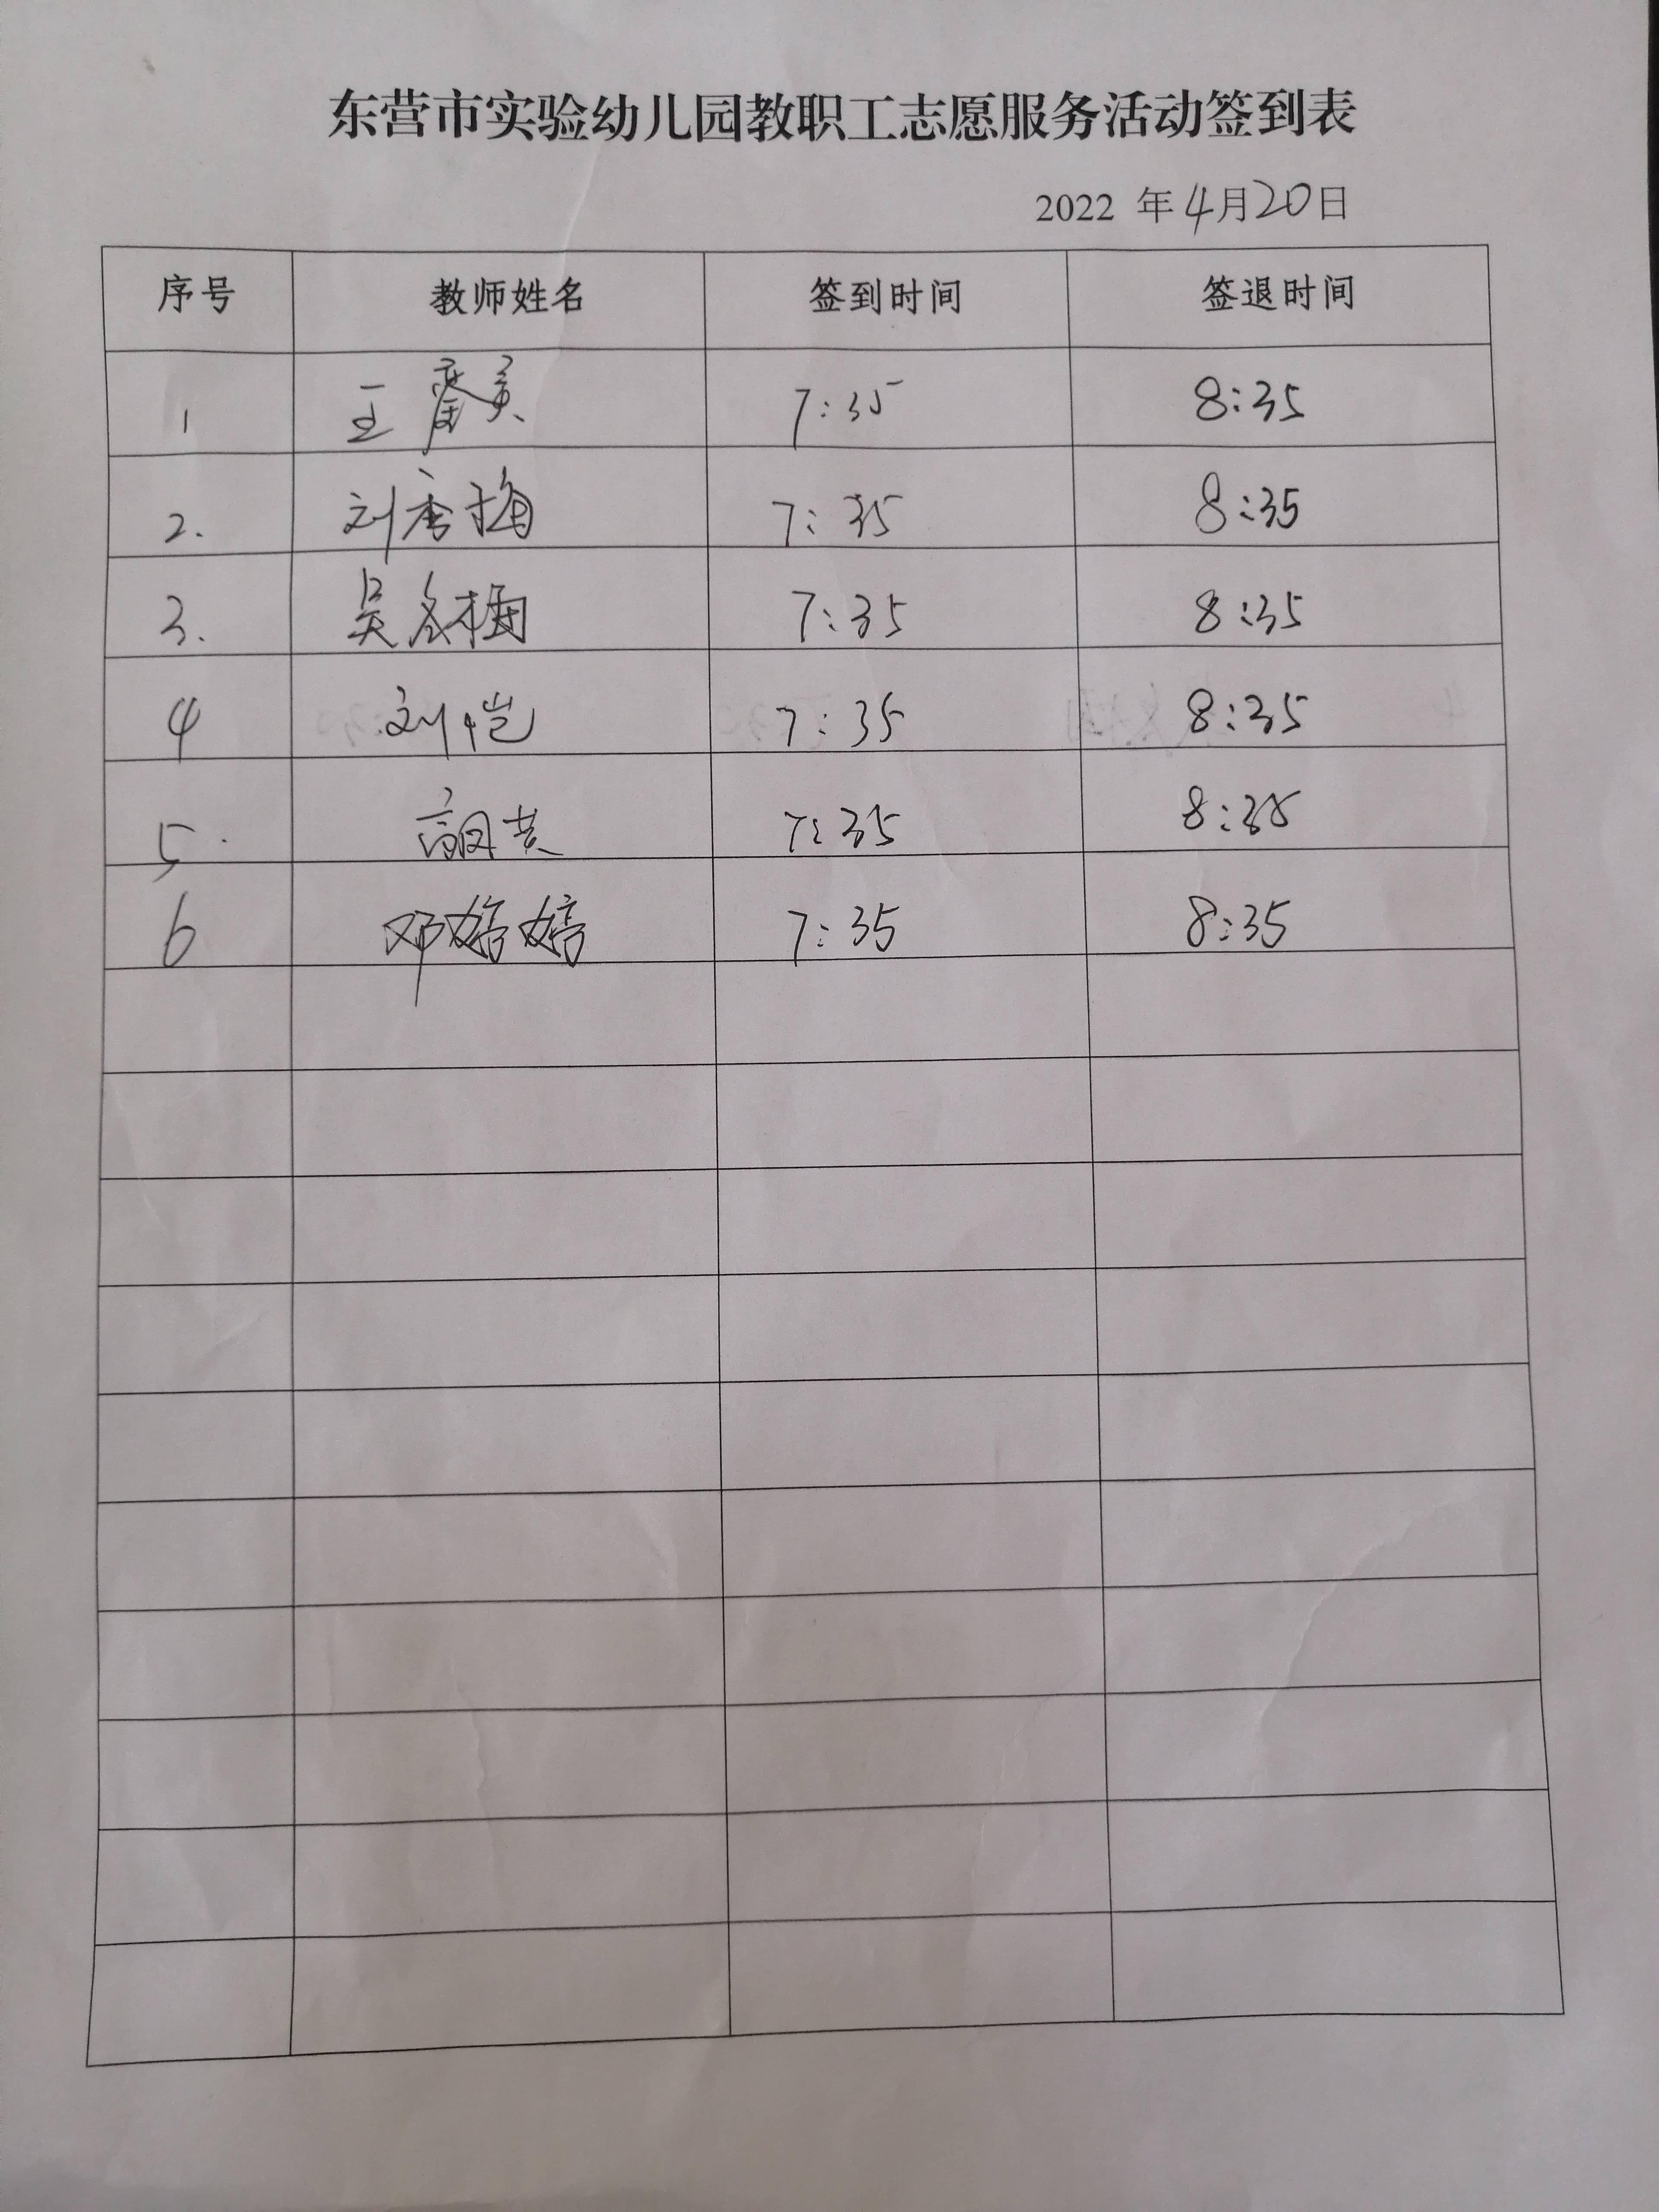 东营市实验幼儿园教职工志愿服务活动签到表
2022 年4月20日
序号 教师姓名 签到时间 签退时间
1 王 7:35 8:35
2. 刘秀梅 7:35 8:35
3. 吴冬梅 7:35 8:35
4 刘恺 7:35 8:35
5. 高 7:35 8:35
6 邓婷婷 7:35 8:35